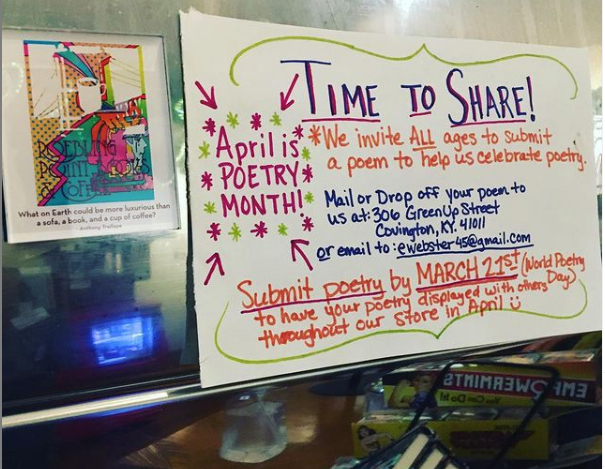 TIME TO SHARE!
April is
POETRY
MONTH!
*We invite ALL ages to submit
a poem to help us celebrate poetry.
Mail or Drop off your poem to
us at: 306 GreenUp Street
Covington, KY. 41011
or email to: ewebster45@gmail.com
Submit poetry by MARCH 21st (World Poetry
Day)
to have your poetry displayed with others
throughout our store in April
ROEBLING
POINT BOOKS
& COFFEE
What on Earth could be more luxurious than
a sofa, a book, and a cup of coffee?
- Anthony Trollope
EMPOWERMINTS
You Can Do It!